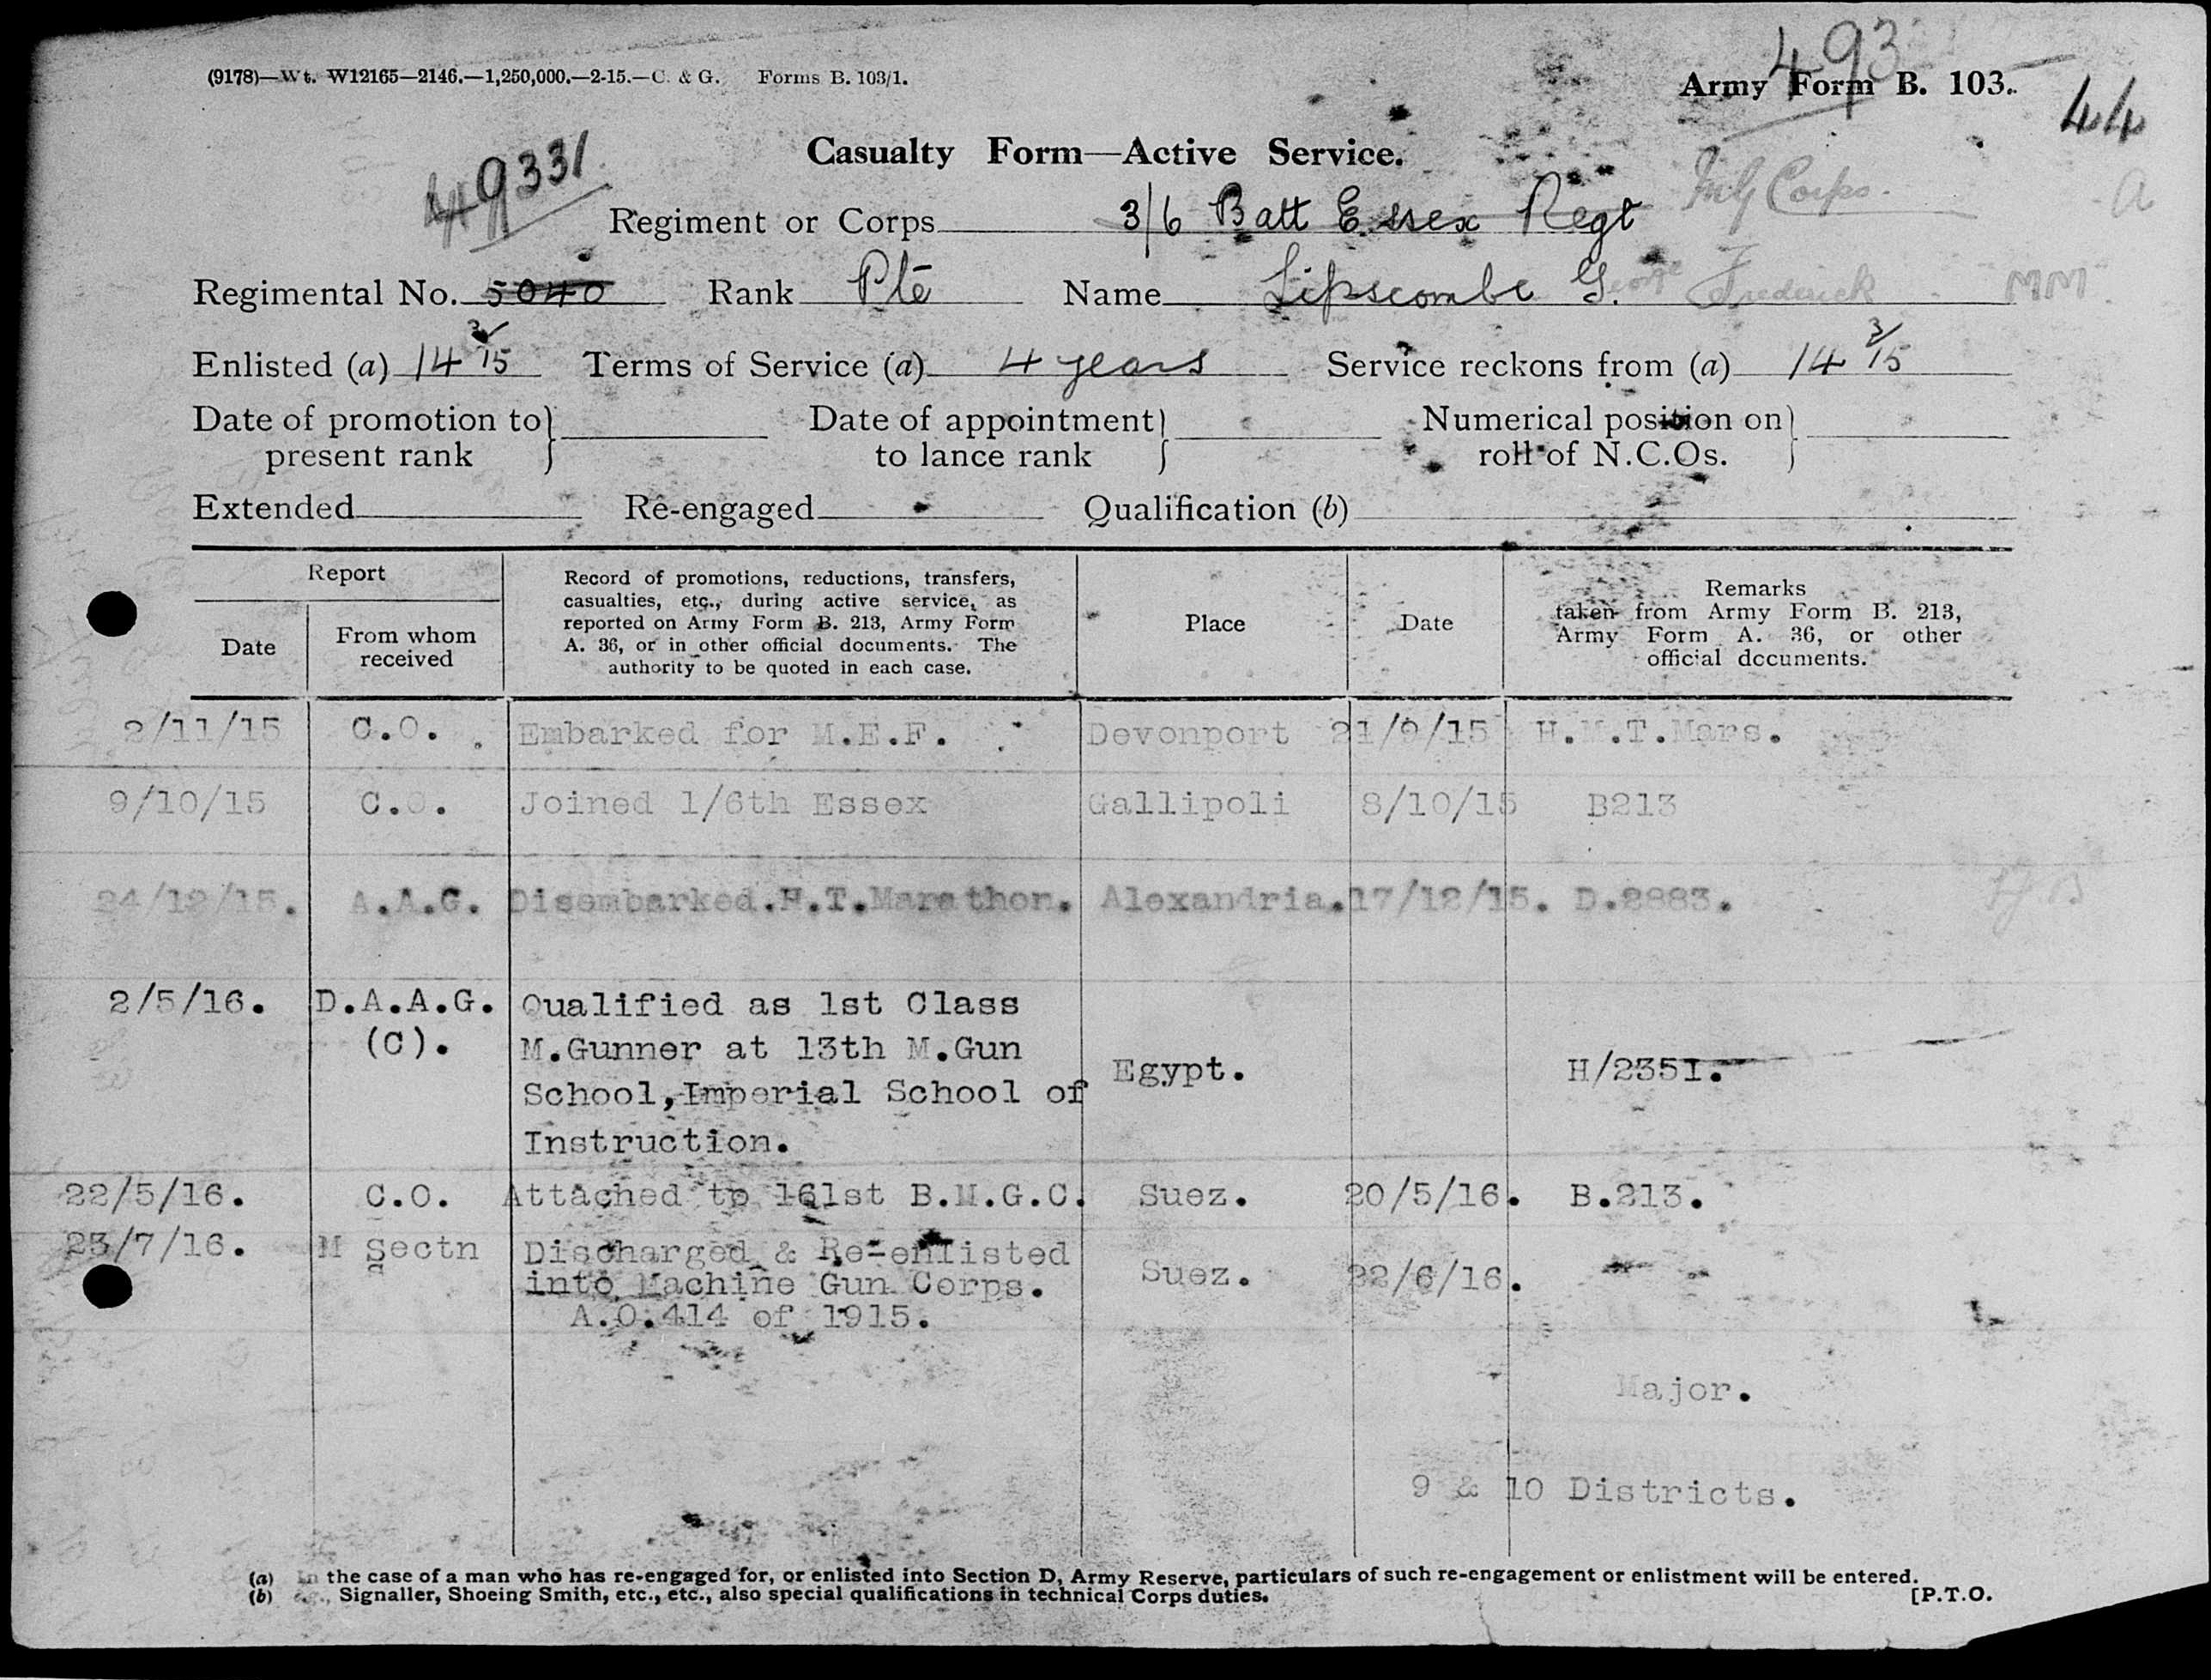 (9178)—Wt. W12165—2146.—1,250,000.—2-15.—C. & G. Forms B. 103/1.
493
Army Form B. 103.
44
Casualty Form—Active Service.
49331
Regiment or Corps 3/6 Batt Essex Regt
Corps.
a
Regimental No. 5040 Rank Pte Name Lipscombe George Frederick MM
Enlisted (a) 14 3/15 Terms of Service (a) 4 years Service reckons from (a) 14 3/15
Date of promotion to present rank
Date of appointment to lance rank
Numerical position on roll of N.C.Os.
Extended Re-engaged Qualification (b)
Report
Date
From whom received
Record of promotions, reductions, transfers,
casualties, etc., during active service, as
reported on Army Form B. 213, Army Form
A. 36, or in other official documents. The
authority to be quoted in each case.
Place
Date
Remarks
taken from Army Form B. 213,
Army Form A. 36, or other
official documents.
2/11/15 C.O. Embarked for M.E.F. Devonport 21/9/15 H.M.T.Mars.
9/10/15 C.O. Joined 1/6th Essex Gallipoli 8/10/15 B213
24/12/15. A.A.G. Disembarked.H.T.Marathon. Alexandria. 17/12/15. D.2883.
2/5/16. D.A.A.G. Qualified as 1st Class
(C). M.Gunner at 13th M.Gun
Egypt. H/2351.
School, Imperial School of
Instruction.
22/5/16. C.O. Attached to 161st B.M.G.C. Suez. 20/5/16. B.213.
23/7/16. M Sectn Discharged & Re-enlisted
into Machine Gun Corps. Suez. 22/6/16.
A.O.414 of 1915.
Major.
9 & 10 Districts.
(a) In the case of a man who has re-engaged for, or enlisted into Section D, Army Reserve, particulars of such re-engagement or enlistment will be entered.
(b) e.g., Signaller, Shoeing Smith, etc., etc., also special qualifications in technical Corps duties.
[P.T.O.